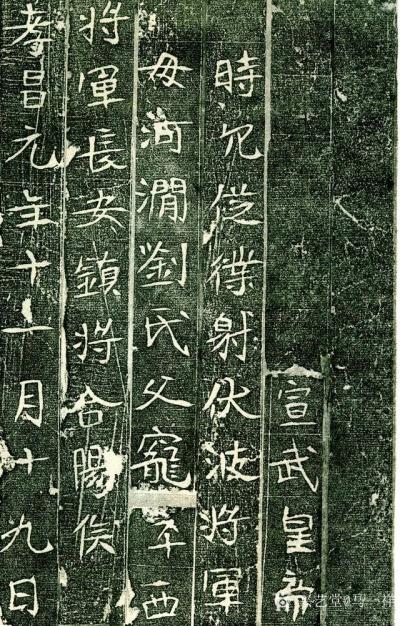 宣武皇帝
時冗從僕射伏波將軍
母河澗劉氏父寵平西
將軍長安鎮將合陽侯
孝昌元年十一月十九日
艺堂@马一样